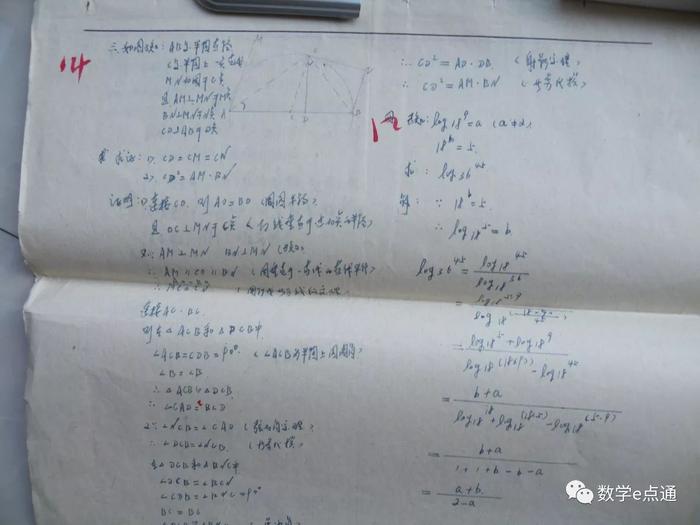 14
三. 如图已知: AB为半圆直径
C为半圆上一点
MN切圆于C点
且 AM⊥MN于M点
BN⊥MN于N点
CD⊥AB于D点
求证: 1). CD=CM=CN
2). CD²=AM·BN
证明: 1) 连接CO. 则 AO=BO (同圆半径)
且 OC⊥MN于C点
又∵ AM⊥MN BN⊥MN (已知)
连接AC、BC.
则在△ACB和△DCB中
∠ACB=∠CDB=90° (∠ACB为半圆上圆周角)
∠B=∠B
∴ △ACB∽△DCB
∴ ∠CAD=∠BCD
又∵ ∠NCB=∠CAD (弦切角定理)
∴ ∠DCB=∠NCB (等量代换)
在△DCB和△BNC中
∠DCB=∠BCN
∠CDB=∠BNC=90°
BC=BC
∴ CD²=AD·DB (射影定理)
∴ CD²=AM·BN (等量代换)
12
四. 已知: log18^9=a (a≠2)
18^b=5.
求: log36^45
解: ∵ 18^b=5.
∴ log18^5=b
log36^45=log18^45/log18^36
=(log18^5+log18^9)/(log18^(18×…)-log18^45)
=(b+a)/(log18^18+log18^(18·5)-log18^(5·9))
=(b+a)/(1+1+b-b-a)
=(a+b)/(2-a)
数学e点通